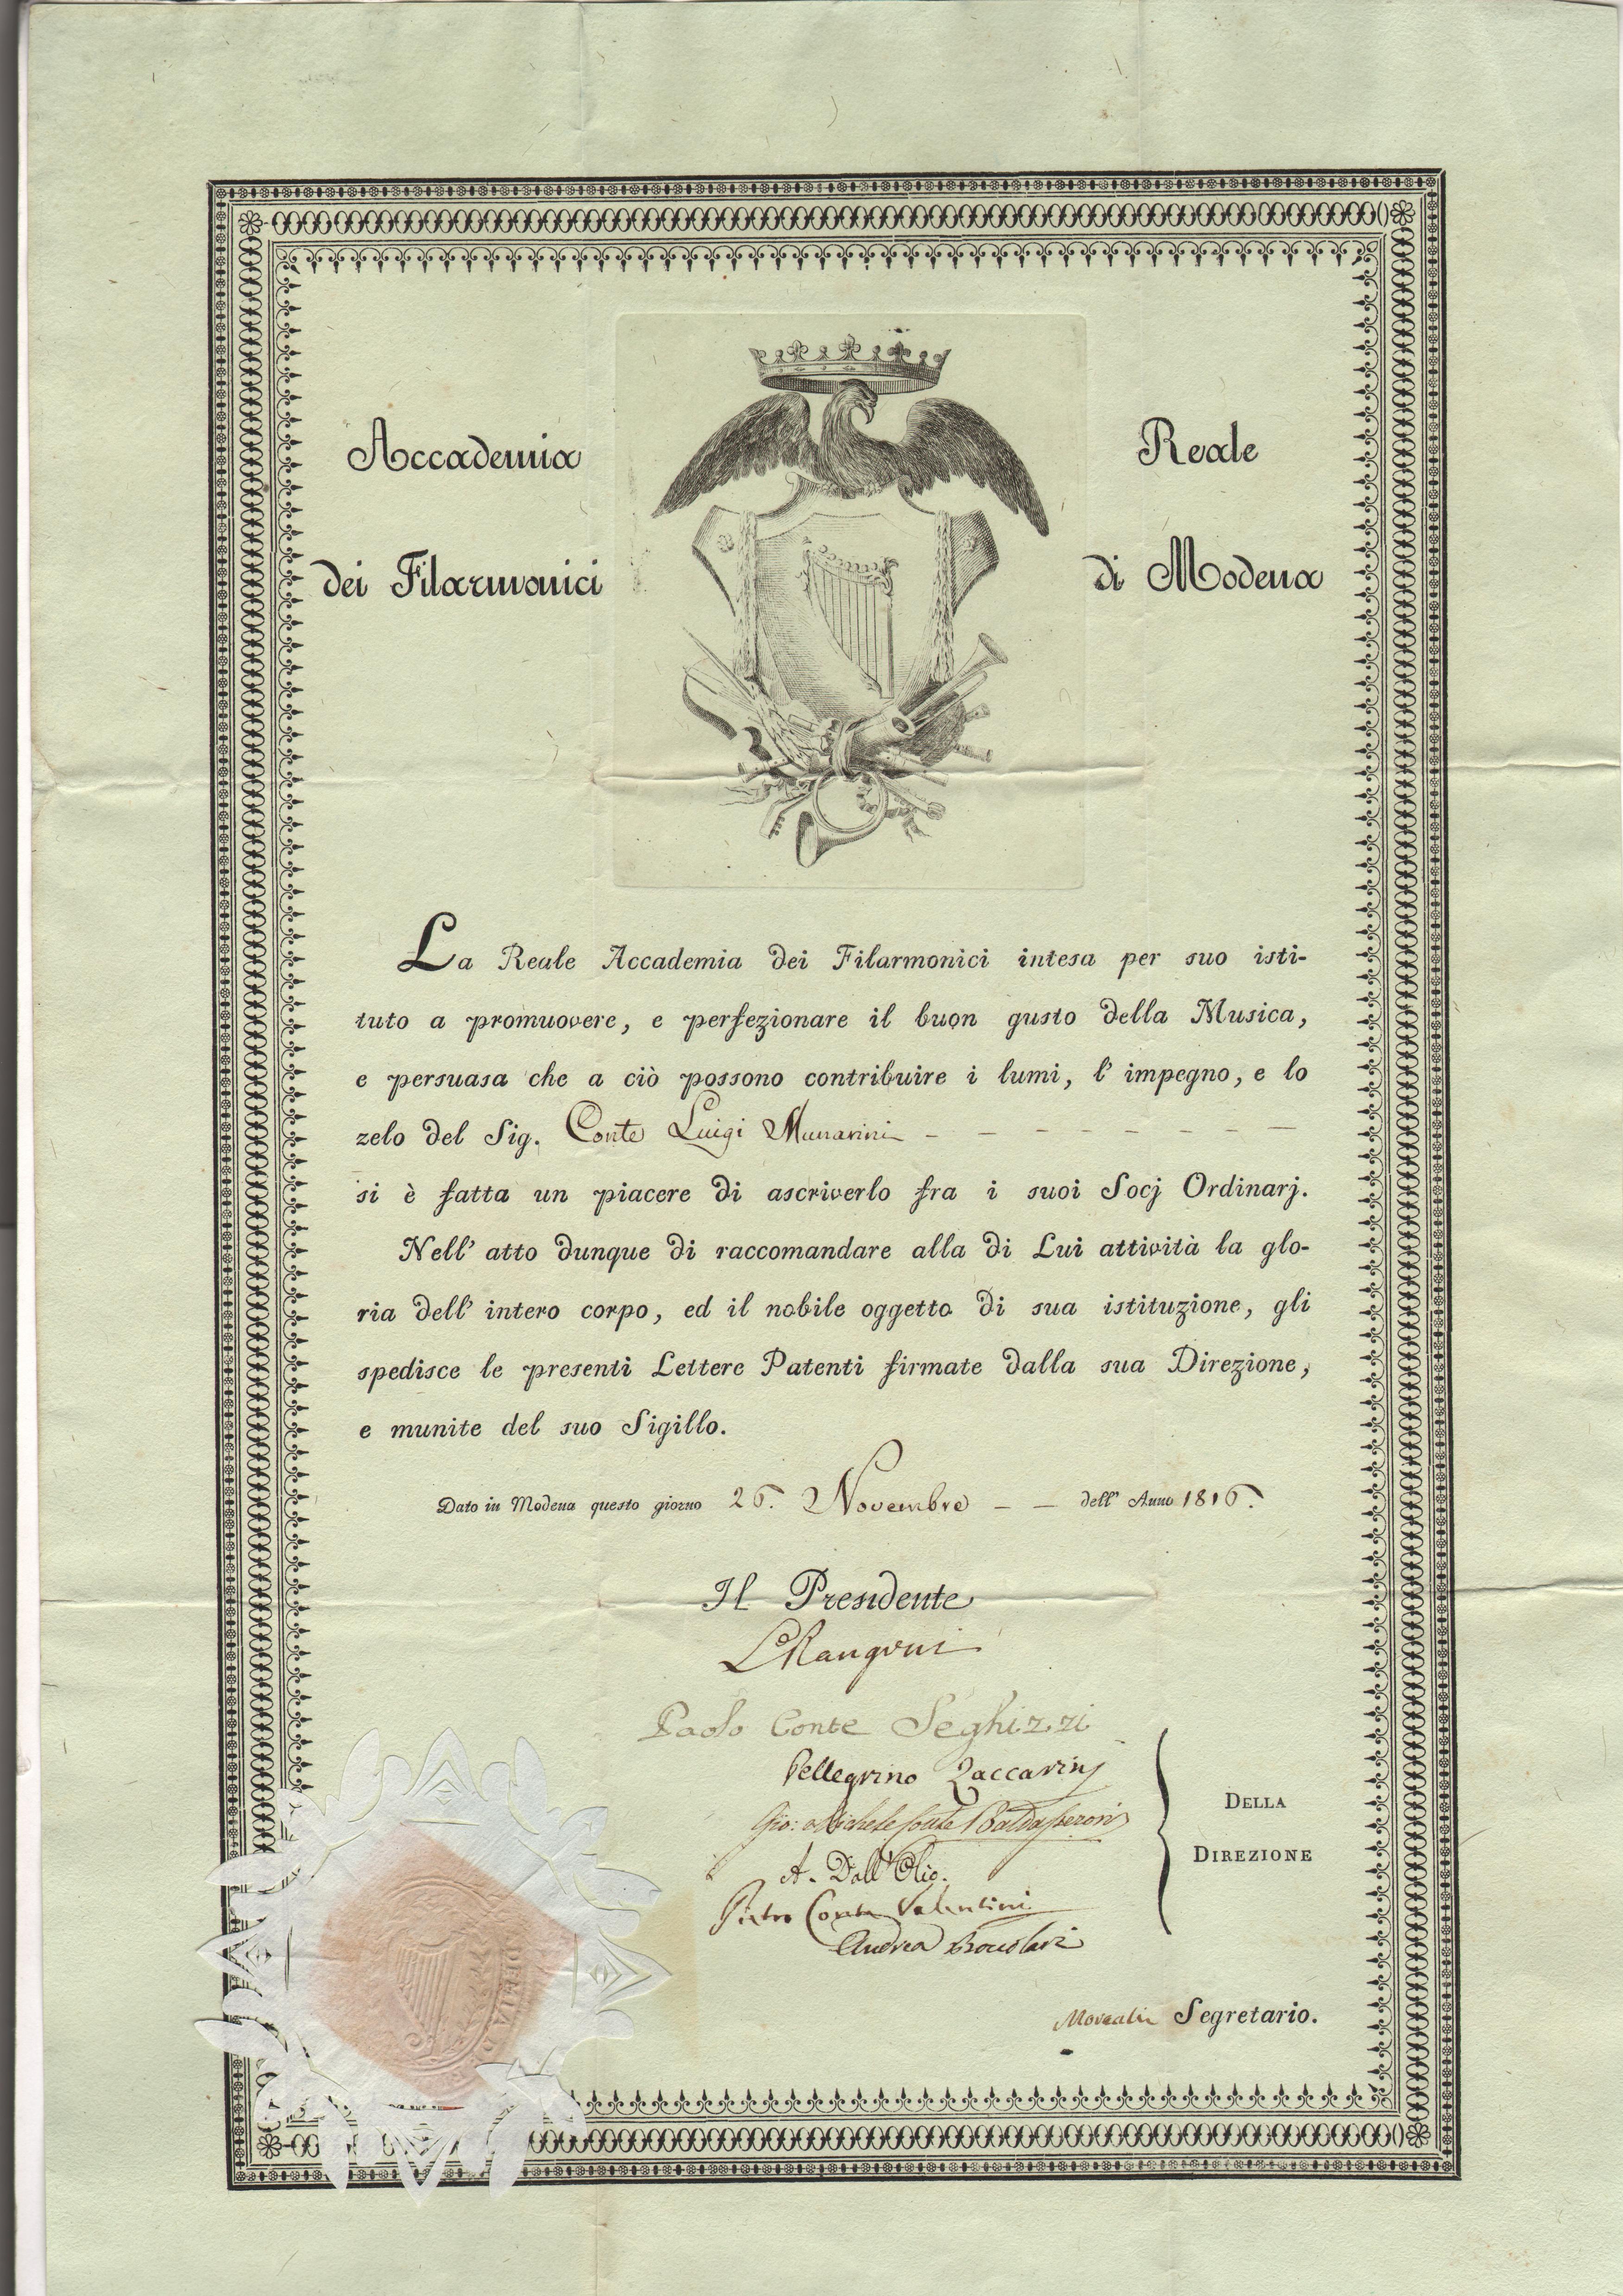 Accademia Reale
dei Filarmonici di Modena
La Reale Accademia dei Filarmonici intesa per suo isti-
tuto a promuovere, e perfezionare il buon gusto della Musica,
e persuasa che a ciò possono contribuire i lumi, l' impegno, e lo
zelo del Sig. Conte Luigi Munarini - - - - - - - -
si è fatta un piacere di ascriverlo fra i suoi Socj Ordinarj.
Nell' atto dunque di raccomandare alla di Lui attività la glo-
ria dell' intero corpo, ed il nobile oggetto di sua istituzione, gli
spedisce le presenti Lettere Patenti firmate dalla sua Direzione,
e munite del suo Sigillo.
Dato in Modena questo giorno 26. Novembre - - dell' Anno 1816.
Il Presidente
L Rangoni
Paolo Conte Seghizzi
Pellegrino Zaccarinj
Gio: Michele Conte
A. Dall' Olio.
Pietro Conte Valentini
Andrea
DELLA
DIREZIONE
Segretario.